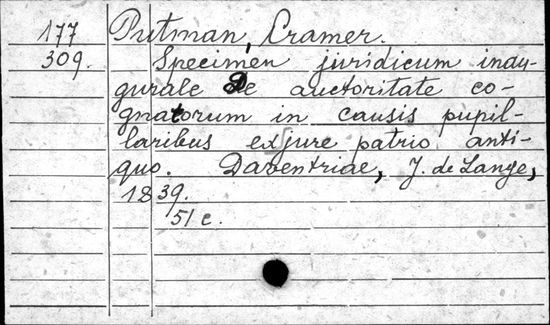 177 Putman, Cramer.
309. Specimen juridicum inau-
gurale De auctoritate co-
gnatorum in causis pupil-
laribus ex jure patrio anti-
quo. Daventriae, J. de Lange,
1839.
51 c.